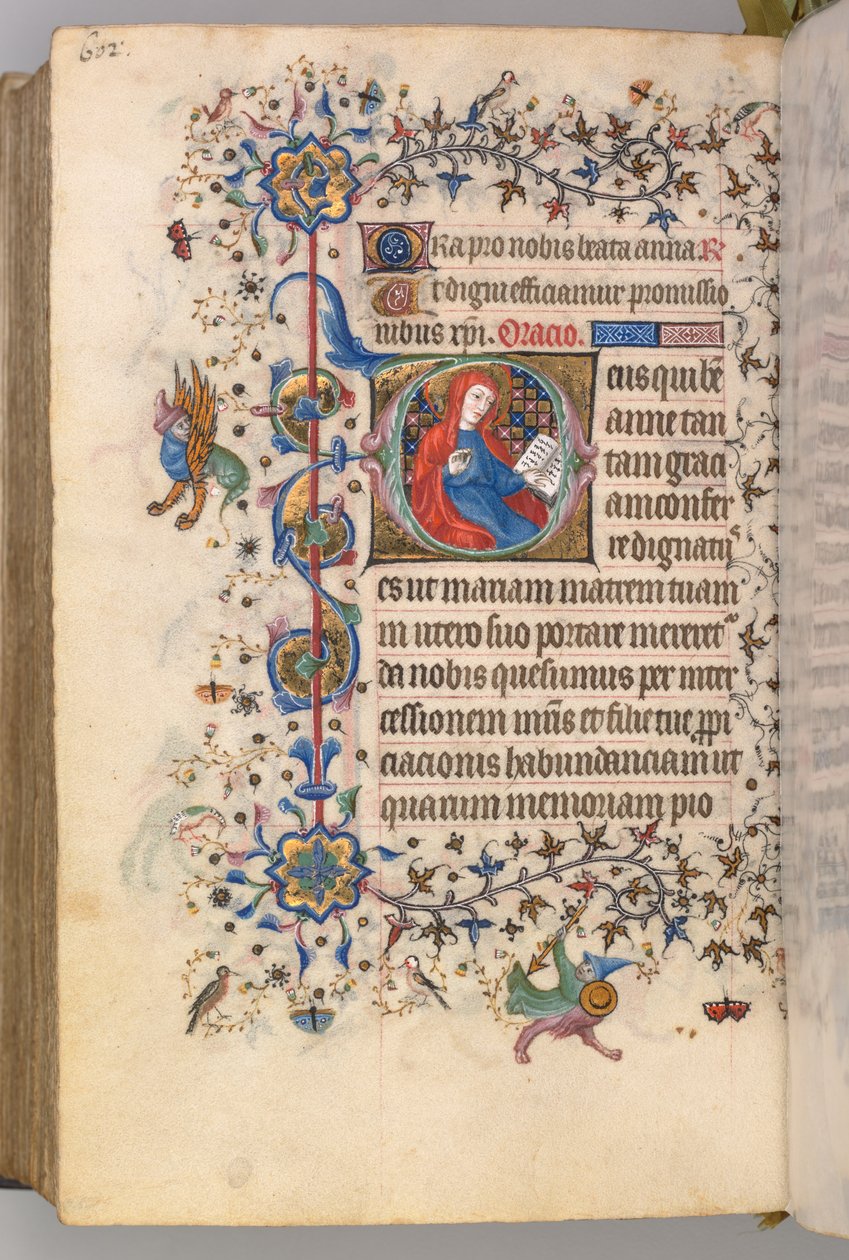 602.
Ora pro nobis beata anna. R̃
Et digni efficiamur promissio
nibus xp̃i. Oracio.
Deus qui bẽ
anne tan
tam graci
am confer
re dignatus
es ut mariam matrem tuam
in utero suo portare meret̃
da nobis quesumus per inter
cessionem mr̃is et filie tue ꝓpi
ciacionis habundanciam ut
quarum memoriam pio